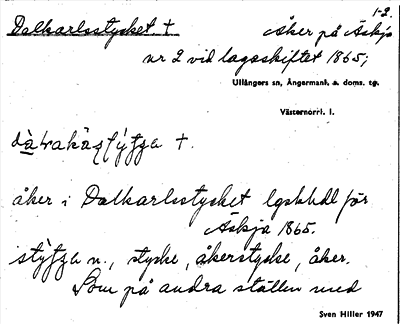 1-2.
Dalkarlsstycket † Åker på Äskja
nr 2 vid lagaskiftet 1865;
Ullångers sn, Ångermanl. s. doms. tg.
Västernorrl. l.
†.
åker i Dalkarlsstycket för
Äskja 1865.
n., stycke, åkerstycke, åker.
Som på andra ställen med
Sven Hiller 1947